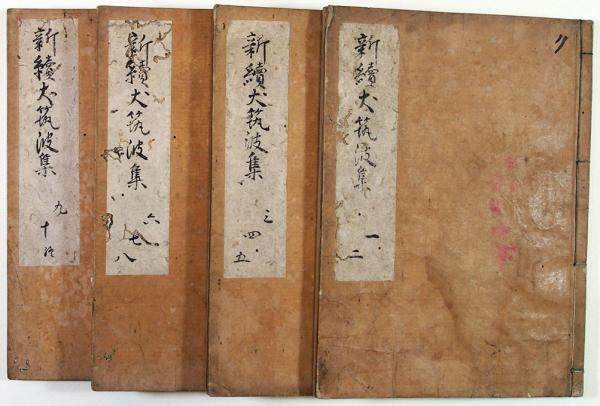 新續犬筑波集
一
二
新續犬筑波集
三
四
五
新續犬筑波集
六
七
八
新續犬筑波集
九
十